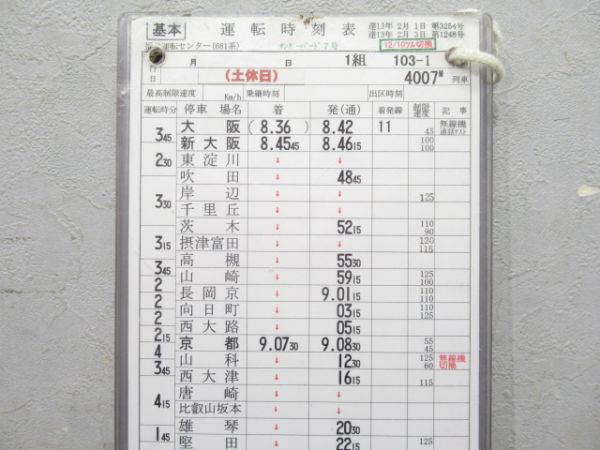 基本 運転時刻表 達13年 2月 1日 第3254号
達13年 2月 3日 第1248号
運転センター(681系) サンダーバード7号 12/10ツル切換
月 日 1組 103-1
(土休日) 4007M 列車
最高制限速度 Km/h 乗継時刻 出区時刻
運転時分 停車場名 着 発(通) 着発線 制限速度 記事
大阪 (8.36) 8.42 11 45 無線機
345 新大阪 8.4545 8.4615 100 100
東淀川 ↓ ↓
230 吹田 ↓ 4845
岸辺 ↓ ↓ 125
千里丘 ↓ ↓
330 茨木 ↓ 5215 110 90
摂津富田 ↓ ↓ 120 115
315 高槻 ↓ 5530
345 山崎 ↓ 5915 125 100
2 長岡京 ↓ 9.0115 110 110
2 向日町 ↓ 0315 110 125
2 西大路 ↓ 0515
215 京都 9.0730 9.0830 55 45
4 山科 ↓ 1230 125 60 無線機切換
345 西大津 ↓ 1615 115
唐崎 ↓ ↓
比叡山坂本 ↓ ↓
415 雄琴 ↓ 2030
145 堅田 ↓ 2215 125